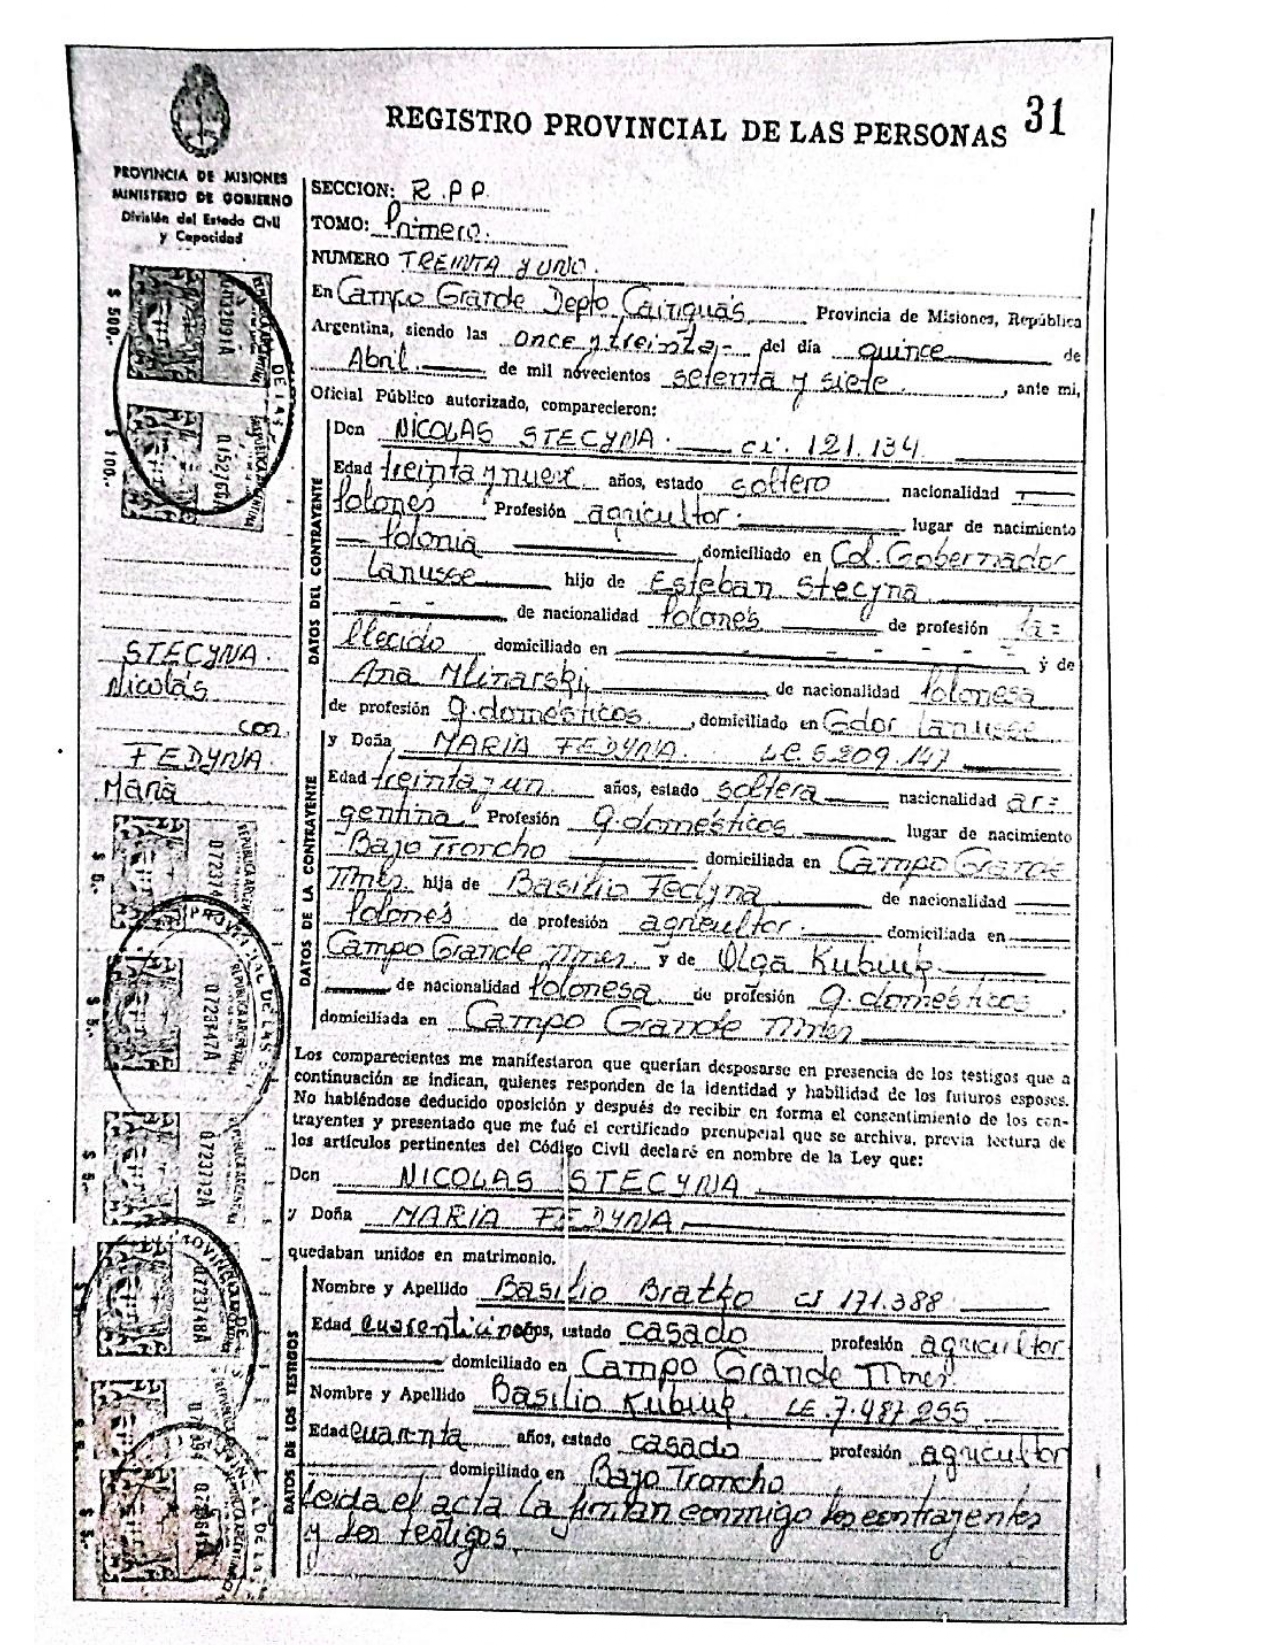 REGISTRO PROVINCIAL DE LAS PERSONAS 31
PROVINCIA DE MISIONES
MINISTERIO DE GOBIERNO
División del Estado Civil
y Capacidad
SECCION: R.P.P.
TOMO: Primero.
NUMERO TREINTA y UNO.
En Campo Grande Depto Cainguás Provincia de Misiones, República
Argentina, siendo las once y treinta.- del día quince de
Abril. de mil novecientos setenta y siete. , ante mi,
Oficial Público autorizado, comparecieron:
$ 500.-
$ 100.-
DATOS DEL CONTRAYENTE
Don NICOLAS STECYNA. ci. 121.134.
Edad treinta y nueve años, estado soltero nacionalidad
Polonés Profesión agricultor. lugar de nacimiento
Polonia domiciliado en Col. Gobernador
Lanusse hijo de Esteban Stecyna
de nacionalidad Polonés de profesión fa=
llecido domiciliado en y de
Ana Mlinarski de nacionalidad Polonesa
de profesión q. domésticos , domiciliado en Gdor Lanusse
STECYNA.
Nicolás
con
FEDYNA.
Maria
DATOS DE LA CONTRAYENTE
y Doña MARIA FEDYNA. LC 5.209.147
Edad treinta y un años, estado soltera nacionalidad ar=
gentina. Profesión q. domésticos lugar de nacimiento
Bajo Troncho domiciliada en Campo Grande
Mnes hija de Basilio Fedyna de nacionalidad
Polonés de profesión agricultor. domiciliada en
Campo Grande Mnes. y de Olga Kubiuk
de nacionalidad Polonesa de profesión q. domésticos
domiciliada en Campo Grande Mnes
Los comparecientes me manifestaron que querían desposarse en presencia de los testigos que a
continuación se indican, quienes responden de la identidad y habilidad de los futuros esposos.
No habiéndose deducido oposición y después de recibir en forma el consentimiento de los con-
trayentes y presentado que me fué el certificado prenupcial que se archiva, previa lectura de
los artículos pertinentes del Código Civil declaré en nombre de la Ley que:
Don NICOLAS STECYNA
y Doña MARIA FEDYNA
quedaban unidos en matrimonio.
DATOS DE LOS TESTIGOS
Nombre y Apellido Basilio Bratko ci 171.388
Edad Cuarenticinco años, estado casado profesión agricultor
domiciliado en Campo Grande Mnes.
Nombre y Apellido Basilio Kubiuk LE 7.487.255
Edad Cuarenta años, estado casado profesión agricultor
domiciliado en Bajo Troncho
Leida el acta la firman conmigo los contrayentes
y los testigos.